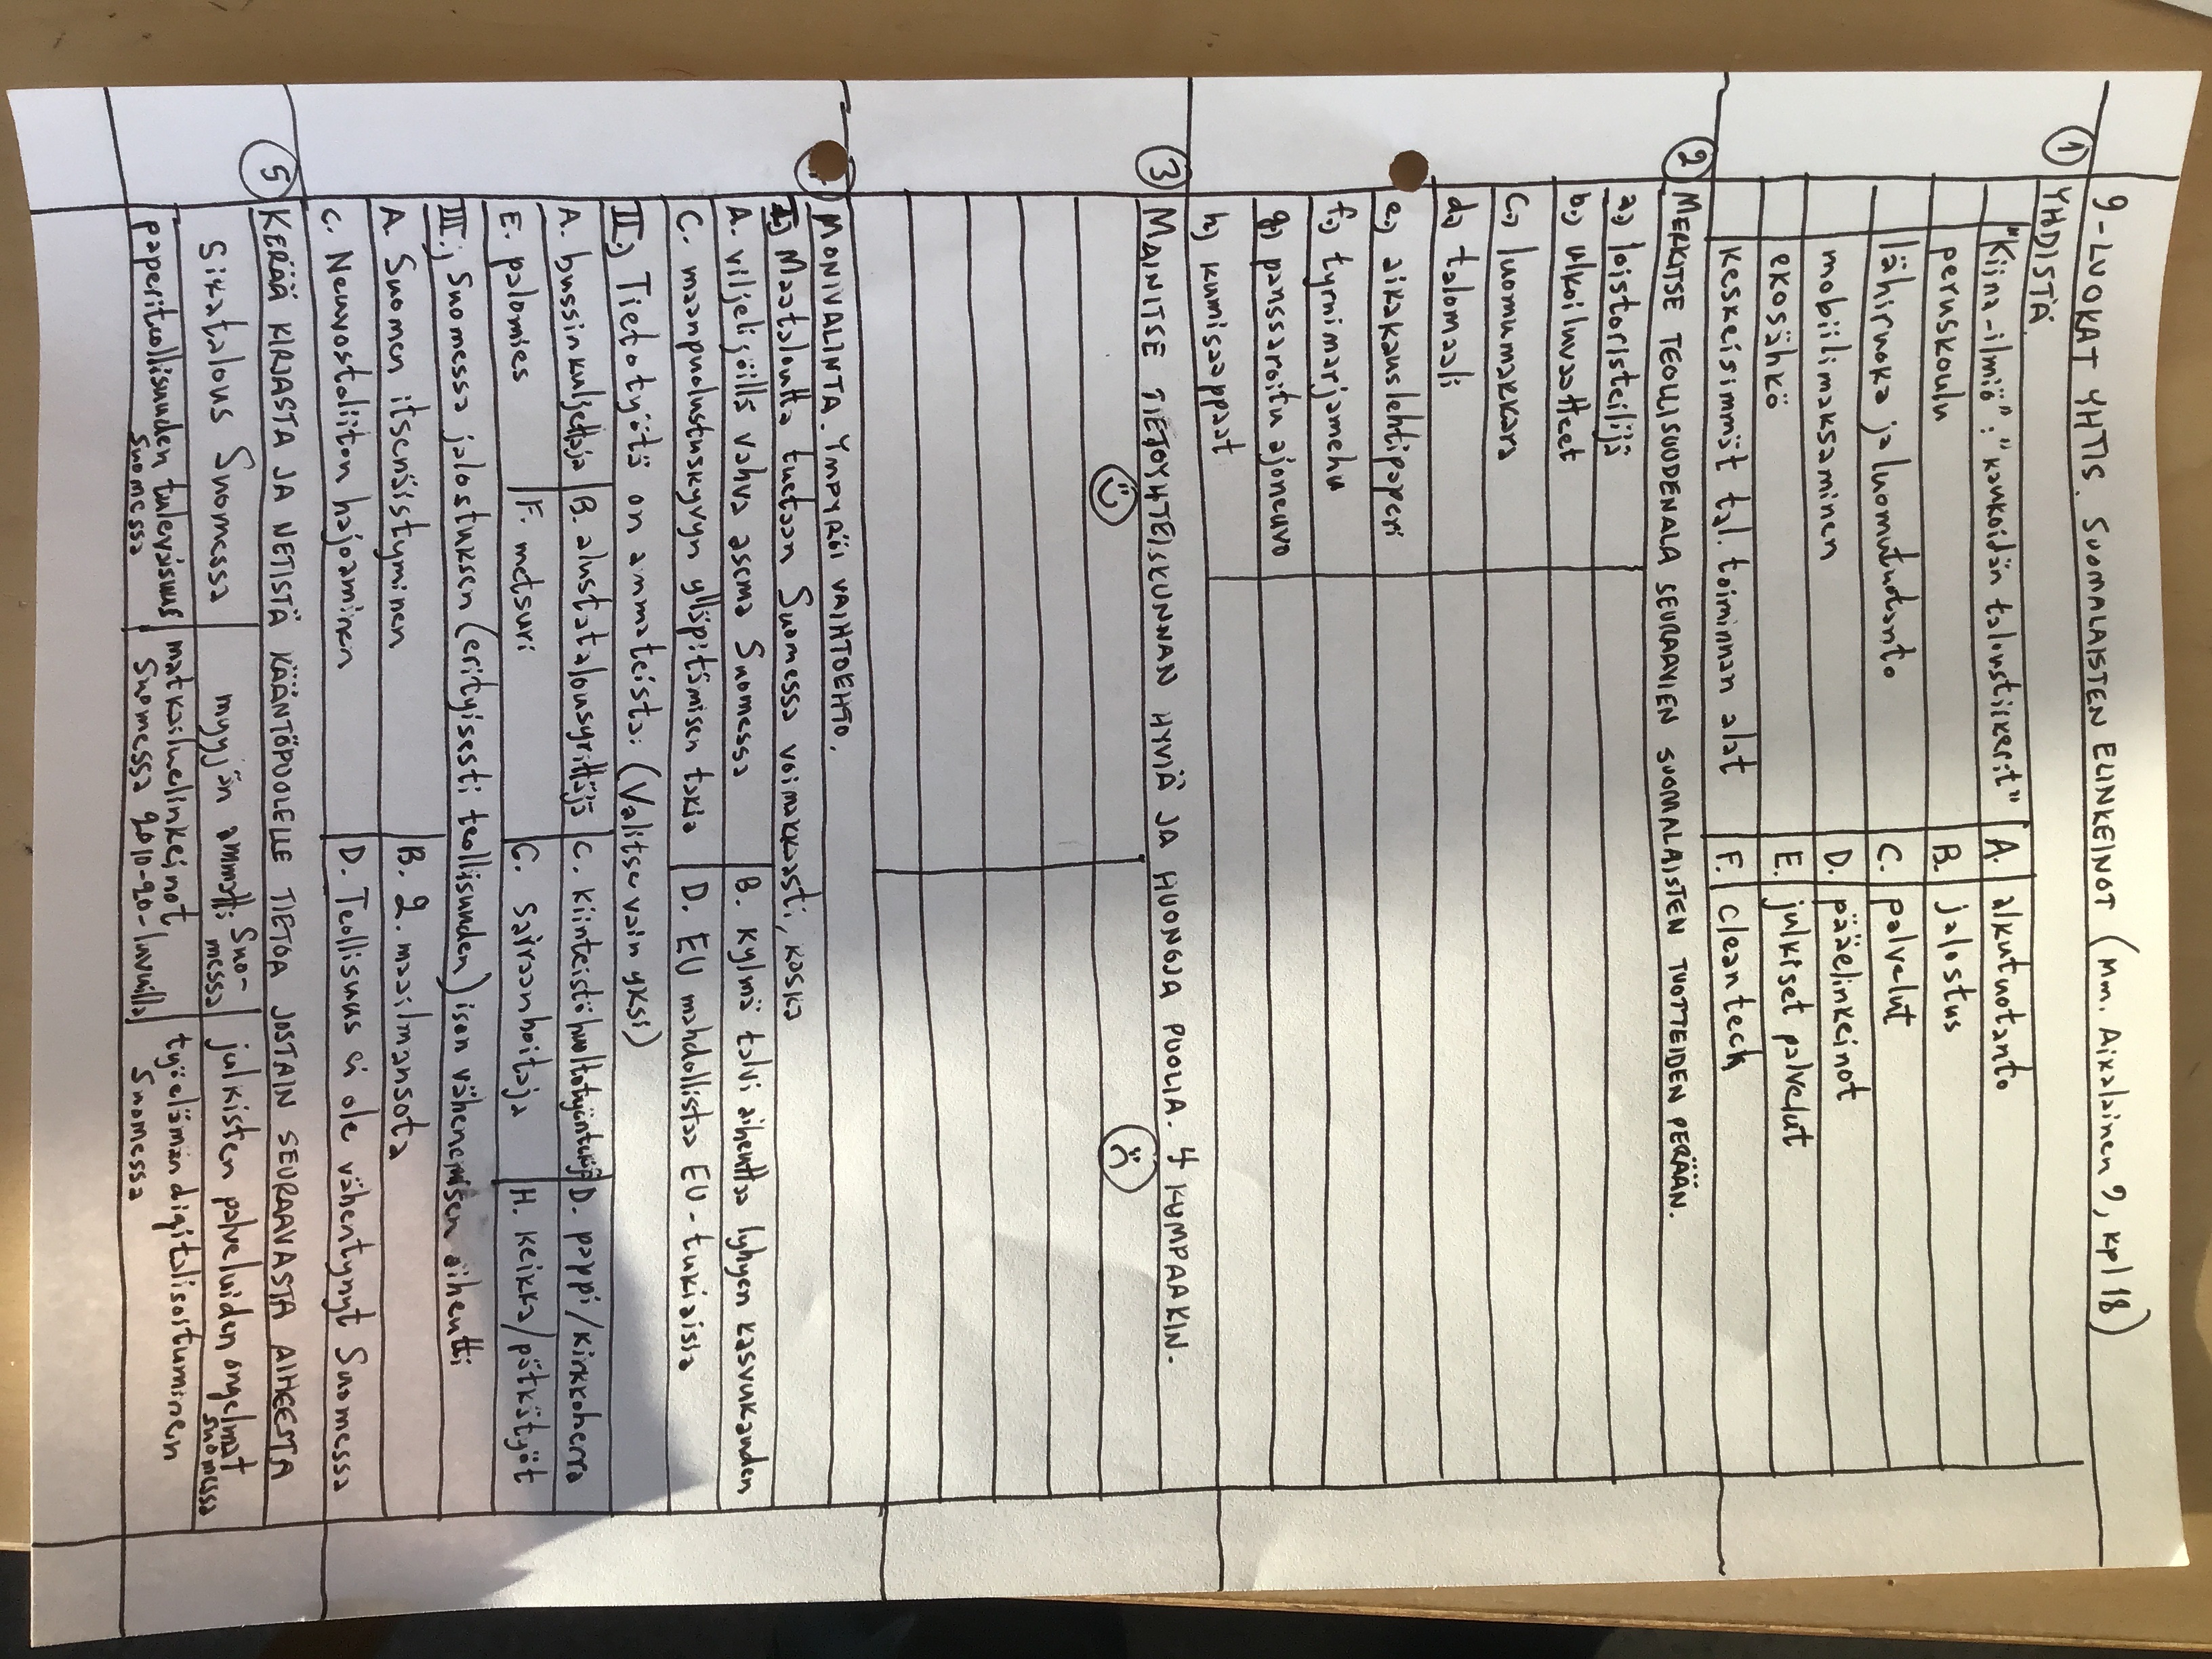 9-LUOKAT YHTIS. SUOMALAISTEN ELINKEINOT (mm. Aikalainen 9, kpl 18)
① YHDISTÄ.
"Kiina-ilmiö": "kaukoidän taloustiikerit" A. alkutuotanto
peruskoulu B. jalostus
lähiruoka ja luomutuotanto C. palvelut
mobiilimaksaminen D. pääelinkeinot
ekosähkö E. julkiset palvelut
keskeisimmät tal. toiminnan alat F. cleantech
② MERKITSE TEOLLISUUDENALA SEURAAVIEN SUOMALAISTEN TUOTTEIDEN PERÄÄN.
a) loistoristeilijä
b) ulkoiluvaatteet
c) luomumakkara
d) talomaali
e) aikakauslehtipaperi
f) tyrnimarjamehu
g) panssaroitu ajoneuvo
h) kumisaappaat
③ MAINITSE TIETOYHTEISKUNNAN HYVIÄ JA HUONOJA PUOLIA. 4 KUMPAAKIN.
MONIVALINTA. YMPYRÖI VAIHTOEHTO.
I) Maataloutta tuetaan Suomessa voimakkaasti, koska
A. viljelijöillä vahva asema Suomessa B. kylmä talvi aiheuttaa lyhyen kasvukauden
C. maanpuolustuskyvyn ylläpitämisen takia D. EU mahdollistaa EU-tukiaisia
II) Tietotyötä on ammateista: (Valitse vain yksi)
A. bussinkuljettaja B. alustatalousyrittäjä C. kiinteistöhuoltotyöntekijä D. pappi/kirkkoherra
E. palomies F. metsuri G. sairaanhoitaja H. keikka/pätkätyöt
III) Suomessa jalostuksen (erityisesti teollisuuden) ison vähenemisen aiheutti
A. Suomen itsenäistyminen B. 2. maailmansota
C. Neuvostoliiton hajoaminen D. Teollisuus ei ole vähentynyt Suomessa
⑤ KERÄÄ KIRJASTA JA NETISTÄ KÄÄNTÖPUOLELLE TIETOA JOSTAIN SEURAAVASTA AIHEESTA
Sikatalous Suomessa myyjän ammatti Suo-messa julkisten palveluiden ongelmat Suomessa
paperiteollisuuden tulevaisuus Suomessa matkailuelinkeinot Suomessa 2010-20-luvuilla työelämän digitalisoituminen Suomessa